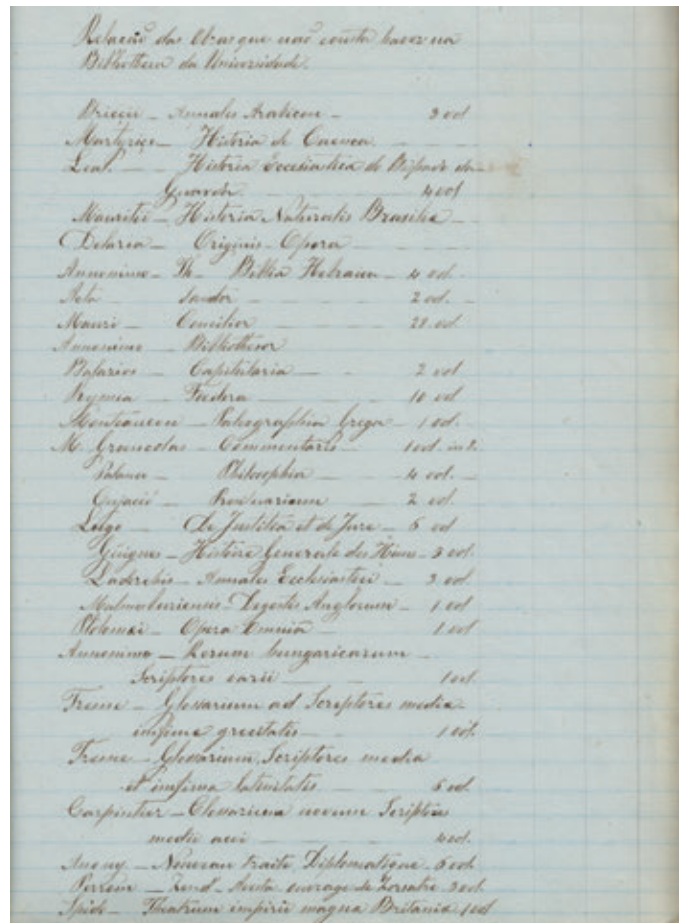 Relação das Obras que não consta haver na
Bibliotheca da Universidade.
Annales 3 vol
Martyriço — Historia de Cuenca
Leal. — Historia Ecclesiastica do Bispado da
Guarda 4 vol
Mauritii — Historia Naturalis Brasilia
Originis — Opera
Annonimo — Biblia Hebraica — 4 vol.
2 vol.
Concilior 28 vol.
Annonimo — Bibliothecа
Capitularia — 2 vol
Foedera — 10 vol
Paleographia Grega — 1 vol.
M. Granados — Commentaris
Philosophia — 4 vol.
2 vol.
Lugo — De Justitia et de Jure — 5 vol
Guignes — Histoire Generale des Huns — 3 vol.
Laderchis — Annales Ecclesiastici — 3 vol
Anglorum — 1 vol
Ptolomei — Opera Omnia — 1 vol
Annonimo — Rerum hungaricarum
Scriptores varii — 1 vol.
Fresne — Glossarium ad Scriptores media
infima grecitatis 1 vol.
Fresne — Glossarium, Scriptores media
et infima latinitatis 6 vol
Carpintier — Glossarium novum Scriptores
medii aevi 4 vol.
Anony — Nouveau traité Diplomatique. 6 vol.
Zend-Avesta ouvrage de Zoroatre 3 vol
Theatrum imperii magna Britania 1 vol